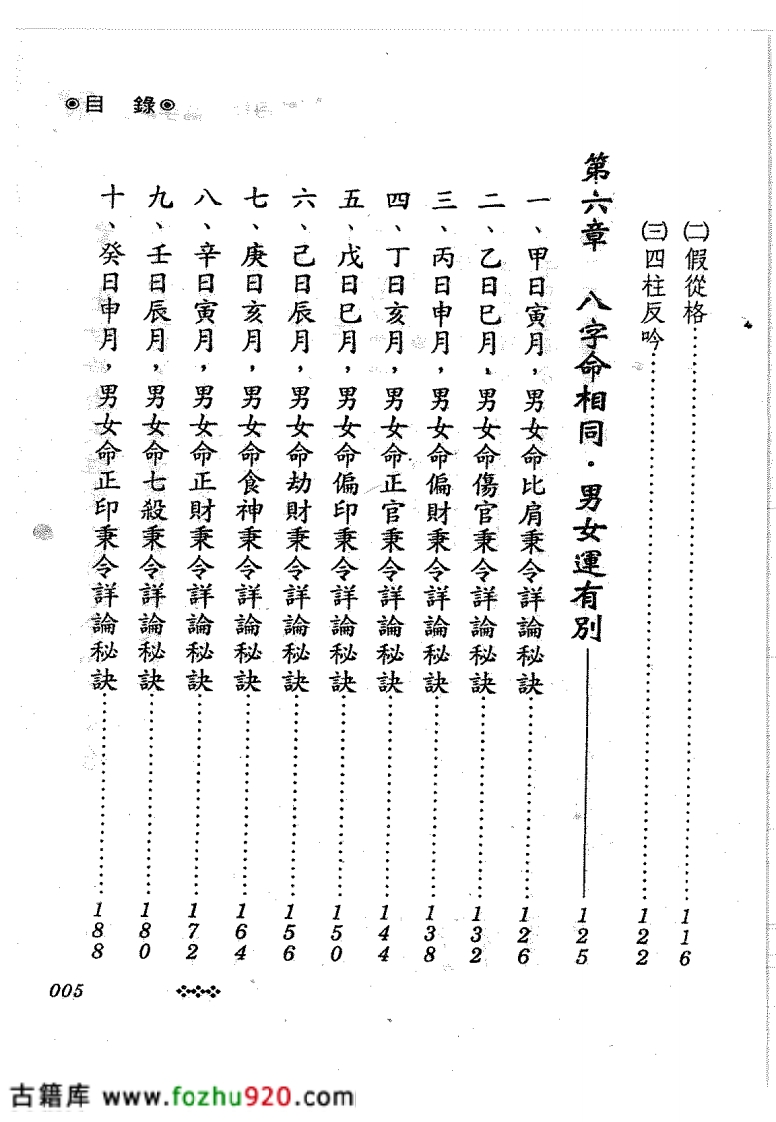 ◉目　錄◉
㈡假從格……116
㈢四柱反吟……122
第六章　八字命相同．男女運有別——125
一、甲日寅月，男女命比肩秉令詳論秘訣……126
二、乙日巳月、男女命傷官秉令詳論秘訣……132
三、丙日申月，男女命偏財秉令詳論秘訣……138
四、丁日亥月，男女命正官秉令詳論秘訣……144
五、戊日巳月，男女命偏印秉令詳論秘訣……150
六、己日辰月，男女命劫財秉令詳論秘訣……156
七、庚日亥月，男女命食神秉令詳論秘訣……164
八、辛日寅月，男女命正財秉令詳論秘訣……172
九、壬日辰月，男女命七殺秉令詳論秘訣……180
十、癸日申月，男女命正印秉令詳論秘訣……188
005
古籍库 www.fozhu920.com